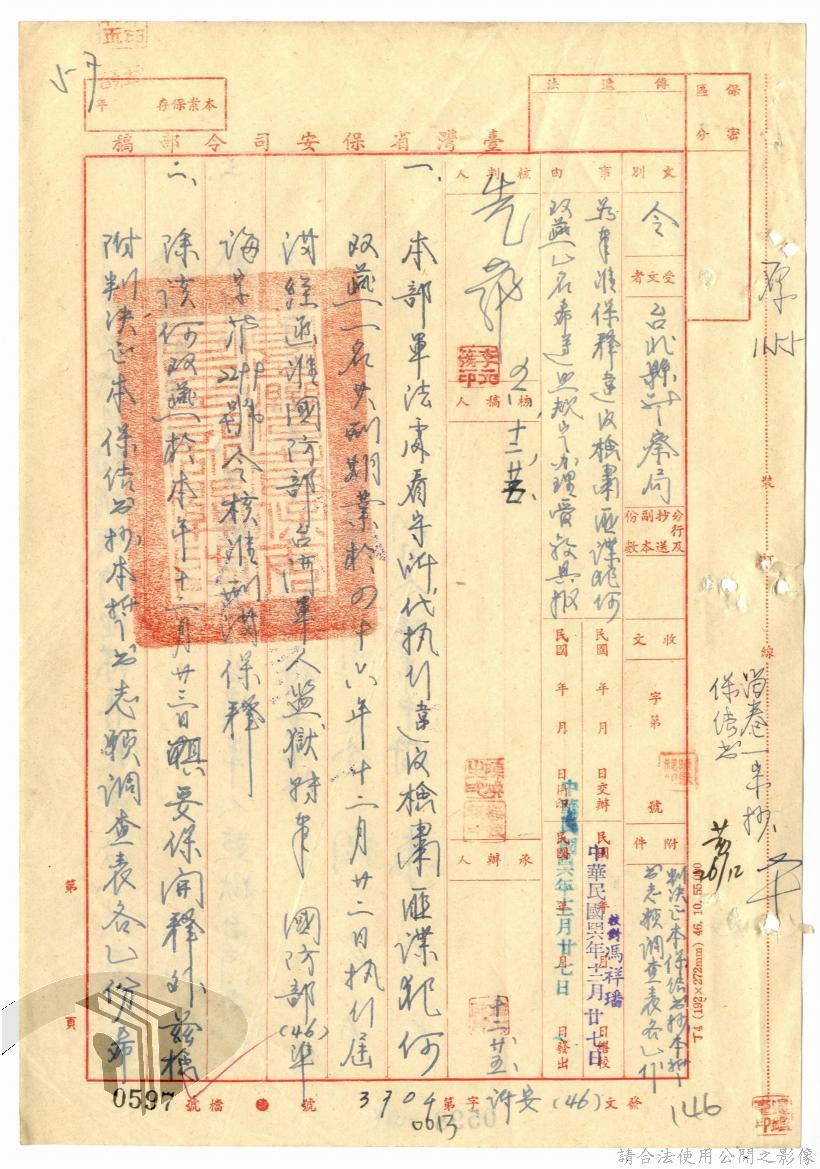 保密
區分
傳遞法
本案保存
年
57
臺灣省保安司令部稿
文別
令
受文者
台北縣警察局
分行及抄送副本份數
收文
字第
號
附件
判決正本保結書抄本暨
書志願調查表各乙份
事由
為奉准保釋違反檢肅匪諜犯何
双燕乙名希
辦理
具報
民國 年 月 日交辦
民國 年 月 日繕校
民國 年 月 日用印
民國 年 月 日發出
校對馮祥璠
中華民國四六年十二月廿七日
中華民國四六年十二月廿七日
核判人
核稿人
十二、廿五、
承辦人
十二、廿五、
一、
本部軍法處看守所代執行違反檢肅匪諜犯何
双燕一名其刑期業於四十六年十二月廿二日執行屆
滿經函准國防部台灣軍人監獄轉奉 國防部(46)準
海字第2299號令核准刑滿保釋
二、
除該何双燕於本年十二月廿三日飭妥保開釋外茲檢
附判決正本保結書抄本暨書志願調查表各乙份希
裝
訂
線
保結書
20/12
T4 (192×272mm) 46. 10. 55.000
第
頁
發文(46)安
字第
3704
號
0613
檔號
0597
146
1155
請合法使用公開之影像